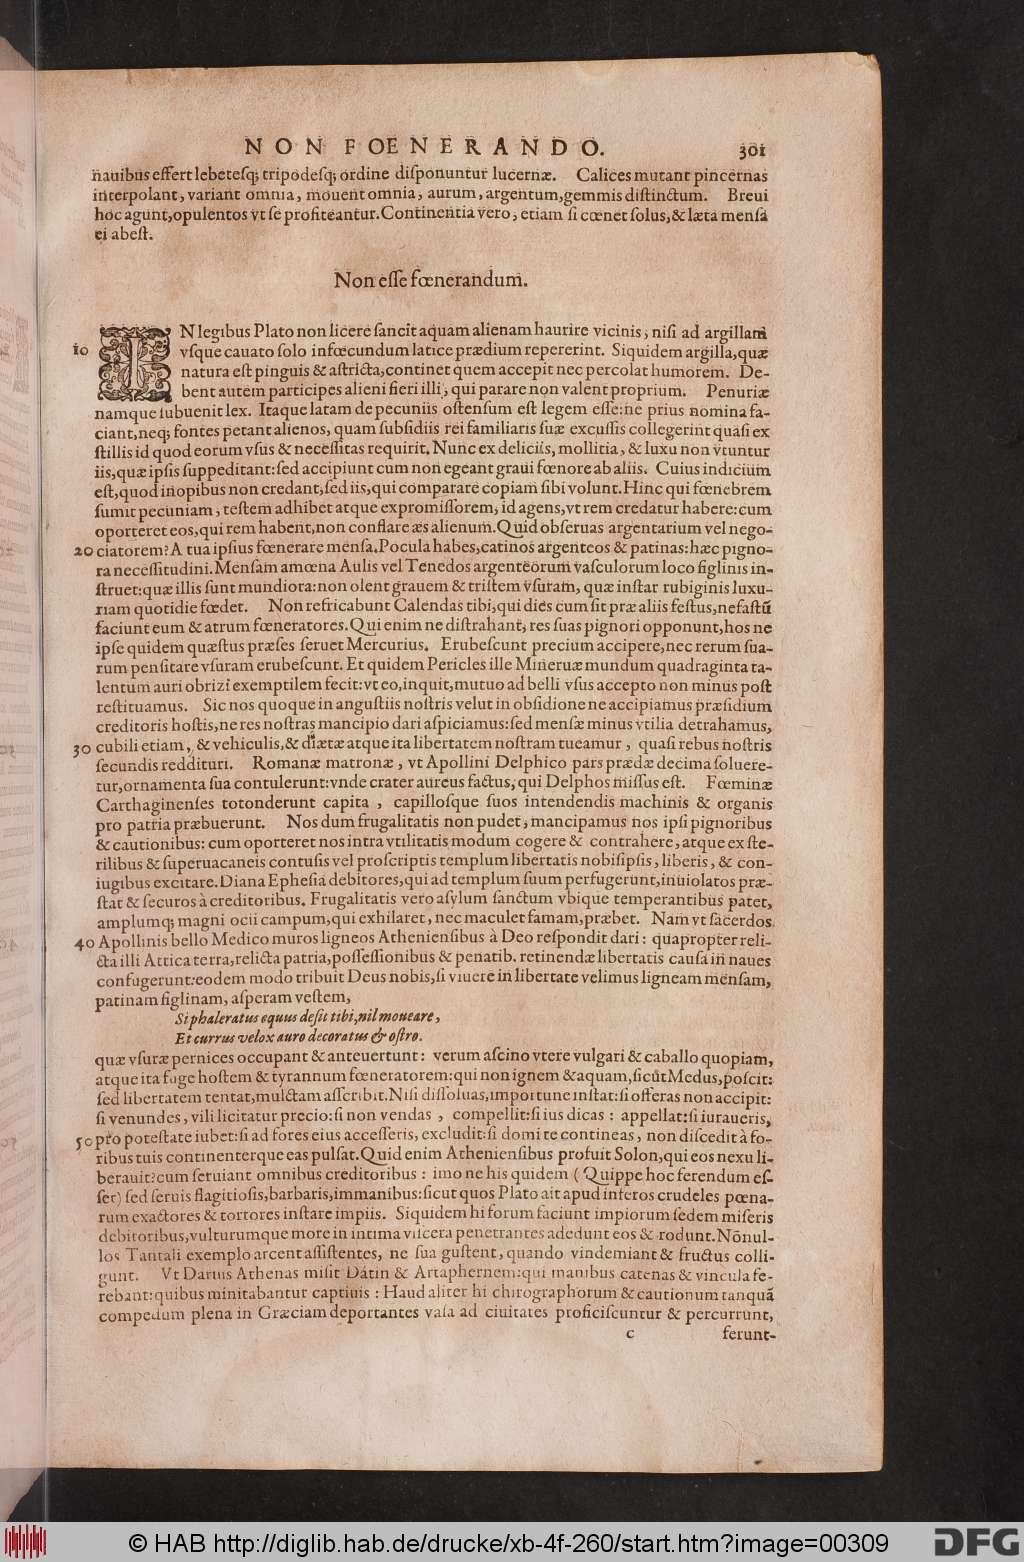 NON FOENERANDO. 301
nauibus effert lebetesq; tripodesq; ordine disponuntur lucernæ. Calices mutant pincernas
interpolant, variant omnia, mouent omnia, aurum, argentum, gemmis distinctum. Breui
hoc agunt, opulentos vt se profiteantur. Continentia vero, etiam si cœnet solus, & læta mensa
ei abest.
Non esse fœnerandum.
IN legibus Plato non licere sancit aquam alienam haurire vicinis, nisi ad argillam
10 vsque cauato solo infœcundum latice prædium repererint. Siquidem argilla, quæ
natura est pinguis & astricta, continet quem accepit nec percolat humorem. De-
bent autem participes alieni fieri illi, qui parare non valent proprium. Penuriæ
namque subuenit lex. Itaque latam de pecuniis ostensum est legem esse: ne prius nomina fa-
ciant, neq; fontes petant alienos, quam subsidiis rei familiaris suæ excussis collegerint quasi ex
stillis id quod eorum vsus & necessitas requirit. Nunc ex deliciis, mollitia, & luxu non vtuntur
iis, quæ ipsis suppeditant: sed accipiunt cum non egeant graui fœnore ab aliis. Cuius indicium
est, quod inopibus non credant, sed iis, qui comparare copiam sibi volunt. Hinc qui fœnebrem
sumit pecuniam, testem adhibet atque expromissorem, id agens, vt rem credatur habere: cum
oporteret eos, qui rem habent, non conflare æs alienum. Quid obseruas argentarium vel nego-
20 ciatorem? A tua ipsius fœnerare mensa. Pocula habes, catinos argenteos & patinas: hæc pigno-
ra necessitudini. Mensam amœna Aulis vel Tenedos argenteorum vasculorum loco figlinis in-
struet: quæ illis sunt mundiora: non olent grauem & tristem vsuram, quæ instar rubiginis luxu-
riam quotidie fœdet. Non refricabunt Calendas tibi, qui dies cum sit præ aliis festus, nefastū
faciunt eum & atrum fœneratores. Qui enim ne distrahant, res suas pignori opponunt, hos ne
ipse quidem quæstus præses seruet Mercurius. Erubescunt precium accipere, nec rerum sua-
rum pensitare vsuram erubescunt. Et quidem Pericles ille Mineruæ mundum quadraginta ta-
lentum auri obrizi exemptilem fecit: vt eo, inquit, mutuo ad belli vsus accepto non minus post
restituamus. Sic nos quoque in angustiis nostris velut in obsidione ne accipiamus præsidium
creditoris hostis, ne res nostras mancipio dari aspiciamus: sed mensæ minus vtilia detrahamus,
30 cubili etiam, & vehiculis, & diætæ atque ita libertatem nostram tueamur, quasi rebus nostris
secundis reddituri. Romanæ matronæ, vt Apollini Delphico pars prædæ decima soluere-
tur, ornamenta sua contulerunt: vnde crater aureus factus, qui Delphos missus est. Fœminæ
Carthaginenses totonderunt capita, capillosque suos intendendis machinis & organis
pro patria præbuerunt. Nos dum frugalitatis non pudet, mancipamus nos ipsi pignoribus
& cautionibus: cum oporteret nos intra vtilitatis modum cogere & contrahere, atque ex ste-
rilibus & superuacaneis contusis vel proscriptis templum libertatis nobisipsis, liberis, & con-
iugibus excitare. Diana Ephesia debitores, qui ad templum suum perfugerunt, inuiolatos præ-
stat & securos à creditoribus. Frugalitatis vero asylum sanctum vbique temperantibus patet,
amplumq; magni ocii campum, qui exhilaret, nec maculet famam, præbet. Nam vt sacerdos
40 Apollinis bello Medico muros ligneos Atheniensibus à Deo respondit dari: quapropter reli-
cta illi Attica terra, relicta patria, possessionibus & penatib. retinendæ libertatis causa in naues
confugerunt: eodem modo tribuit Deus nobis, si viuere in libertate velimus ligneam mensam,
patinam figlinam, asperam vestem,
Si phaleratus equus desit tibi, nil moueare,
Et currus velox auro decoratus & ostro.
quæ vsuræ pernices occupant & anteuertunt: verum ascino vtere vulgari & caballo quopiam,
atque ita fuge hostem & tyrannum fœneratorem: qui non ignem & aquam, sicut Medus, poscit:
sed libertatem tentat, mulctam asscribit. Nisi dissoluas, importune instat: si offeras non accipit:
si venundes, vili licitatur precio: si non vendas, compellit: si ius dicas: appellat: si iuraueris,
50 pro potestate iubet: si ad fores eius accesseris, excludit: si domi te contineas, non discedit à fo-
ribus tuis continenterque eas pulsat. Quid enim Atheniensibus profuit Solon, qui eos nexu li-
berauit? cum seruiant omnibus creditoribus: imo ne his quidem (Quippe hoc ferendum es-
set) sed seruis flagitiosis, barbaris, immanibus: sicut quos Plato ait apud inferos crudeles pœna-
rum exactores & tortores instare impiis. Siquidem hi forum faciunt impiorum sedem miseris
debitoribus, vulturumque more in intima viscera penetrantes adedunt eos & rodunt. Nōnul-
los Tantali exemplo arcent assistentes, ne sua gustent, quando vindemiant & fructus colli-
gunt. Vt Darius Athenas misit Datin & Artaphernem: qui manibus catenas & vincula fe-
rebant: quibus minitabantur captiuis: Haud aliter hi chirographorum & cautionum tanquā
compedum plena in Græciam deportantes vasa ad ciuitates proficiscuntur & percurrunt,
c ferunt-
© HAB http://diglib.hab.de/drucke/xb-4f-260/start.htm?image=00309
DFG